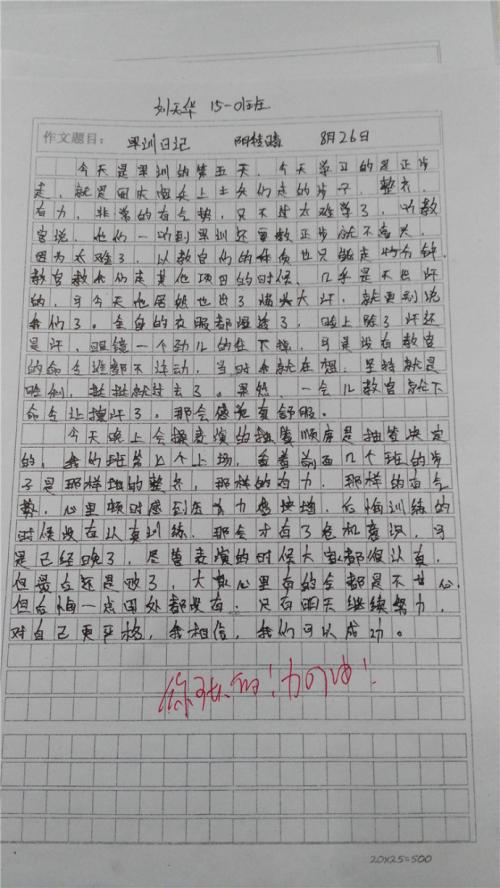 刘天华 15-01班
作文题目: 军训日记 阳转晴 8月26日
今天是军训的第五天,今天学习的是正步
走,就是国庆阅兵上士兵们走的步子,整齐,
有力,非常的有气势,只不过太难学了,听教
官说,他们一听到军训还要教正步就不高兴,
因为太难了,以教官们的体质也只能走10分钟,
教官教我们走其他项目的时候,几乎是不出汗
的,可今天他居然也出了满头大汗,就更别说
我们了。全身的衣服都湿透了,脸上除了汗还
是汗,眼镜一个劲儿的往下掉,可是没有教官
的命令谁都不许动,当时我就在想,坚持就是
胜利,挺挺就过去了。果然,一会儿教官就下
命令让擦汗了。那会感觉真舒服。
今天晚上会操表演的抽签顺序是抽签决定
的,我们班第 个上场,看着前面几个班的步
子是那样地的整齐,那样的有力,那样的有气
势,心里顿时感到压力感倍增,后悔训练的
时候没有认真训练,那会才有了危机意识,可
是已经晚了,尽管表演的时候大家都很认真,
但最后还是败了,大家心里有的全都是不甘心,
但后悔一点用处都没有,只有明天继续努力,
对自己更严格,我相信,我们可以成功。
你可以的!加油!
20X25=500